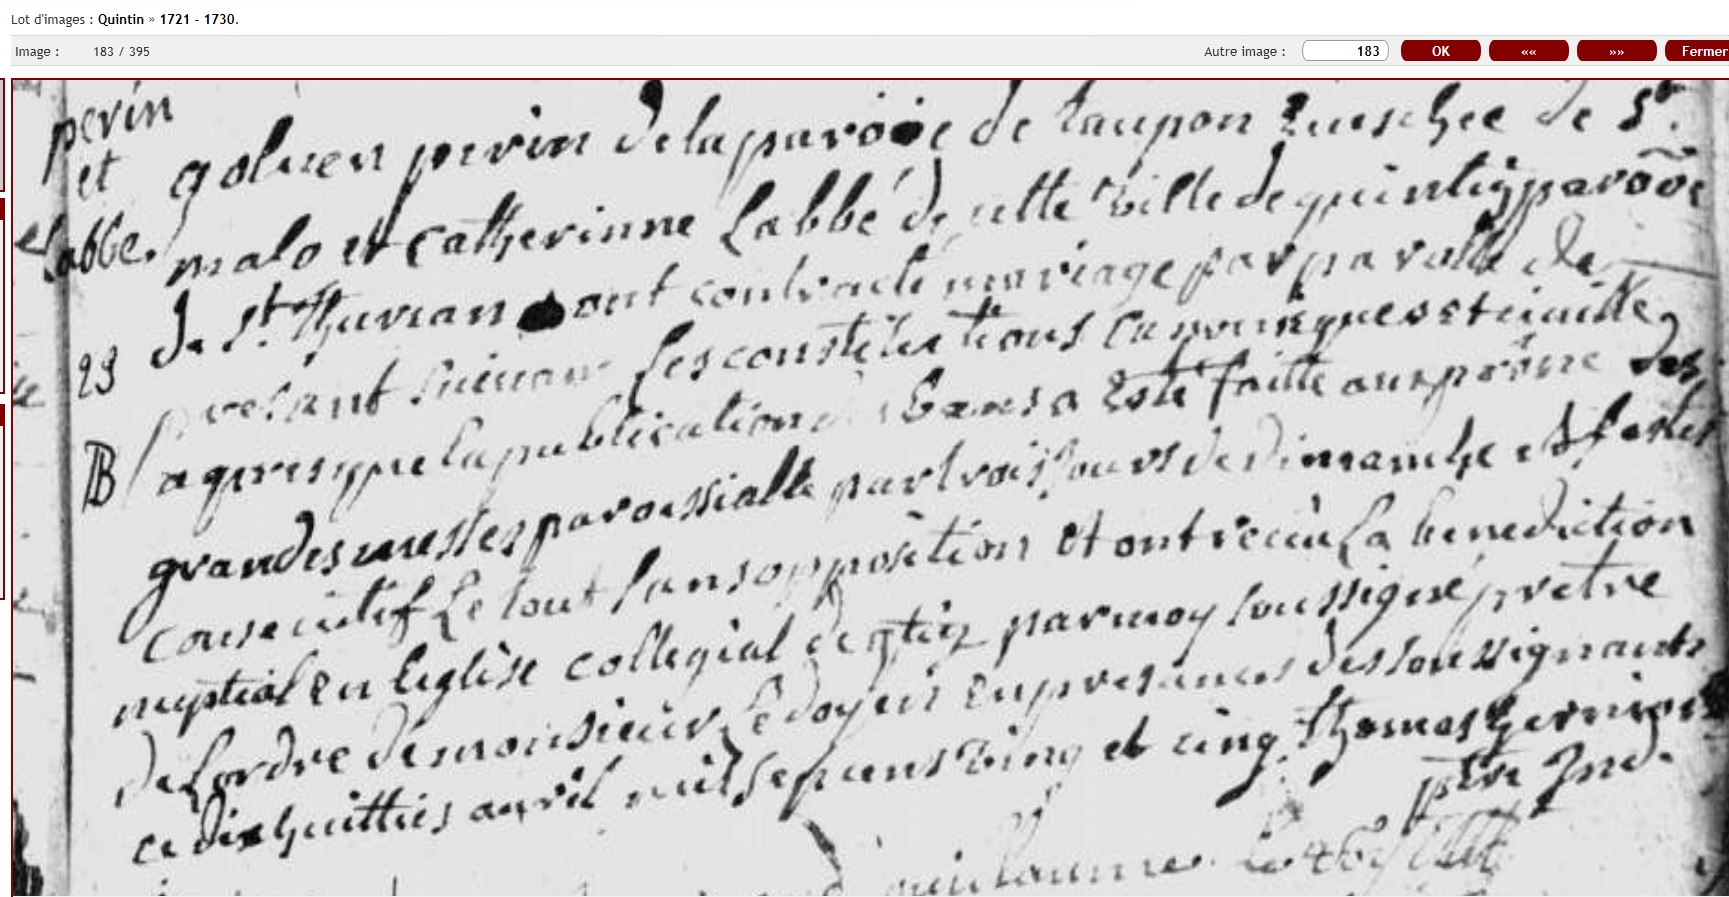 Lot d'images : Quintin » 1721 - 1730.
Image : 183 / 395 Autre image : 183 OK «« »» Fermer
perin
et
Labbe.
23
B
golven perin de la paroóie de taupon Eveschee de St.
malo et Catherinne Labbé de cette ville de quintin paroôie
de st. thurian ont contracte mariage par parolle de
presant suivant les constitutions canoniques et
apres que la publication bans a Este faitte aux prône des
grandes messes paroissialle par trois jours de dimanche et festes
consecutif Le tout sans opposition Et ont recüu La benediction
nuptial En leglise collegial de qtin par moy soussigné prêtre
de lordre de monsieur Le doyen En presances des soussignants
ce dix huitties avril mil sept cens ving et cinq. thomas Garnier
ptre Ind.
guillaume